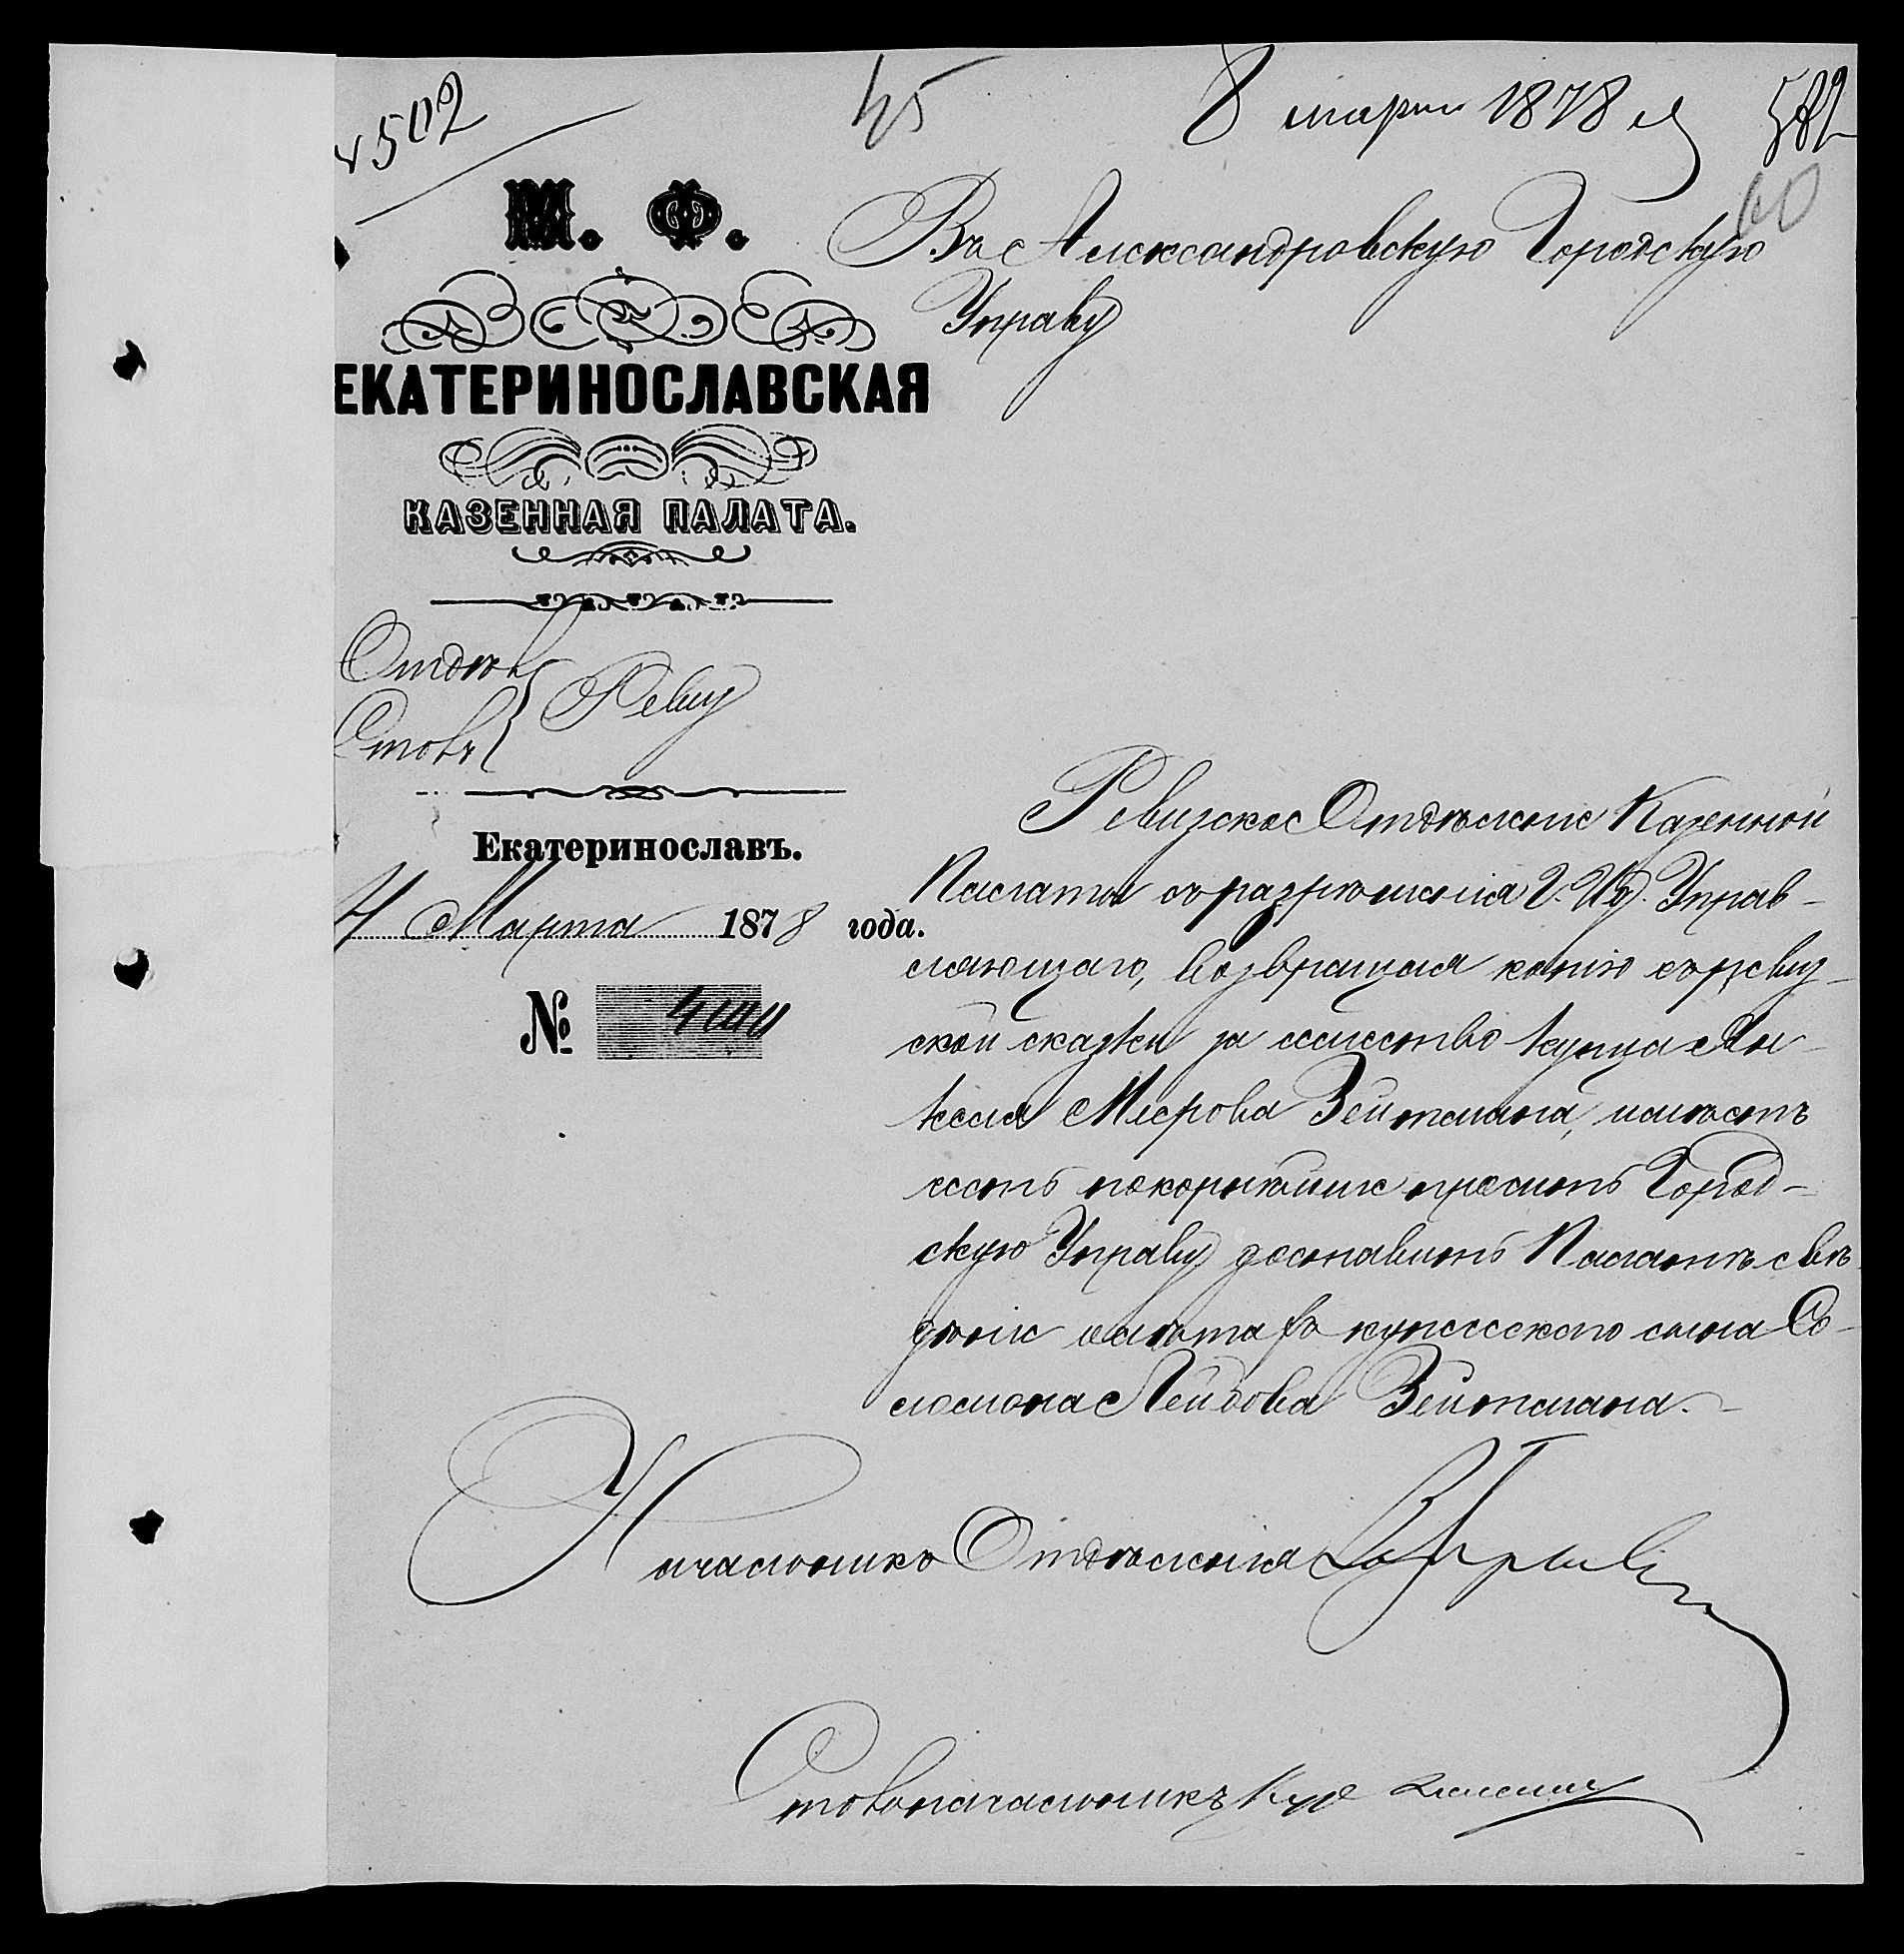 502
45
8 марта 1878 г
582
60
М. Ф.
Въ Александровскую Городскую
Управу
ЕКАТЕРИНОСЛАВСКАЯ
КАЗЕННАЯ ПАЛАТА.
Отдѣл
Столъ
Ревиз
Екатеринославъ.
4 Марта 1878 года.
№
Ревизское Отдѣленіе Казенной
Палаты съ разрѣшенія Г. Управ-
ляющаго, возвращая копію съ ревиз-
ской сказки за семейство купца Ян-
келя Меерова Зейтмана, имѣетъ
честь покорнѣйше просить Город-
скую Управу доставить Палатѣ свѣ-
деніе о лѣтахъ купеческого сына Со-
ломона Лейбова Зейтмана.
Начальникъ Отдѣленія
Столоначальникъ